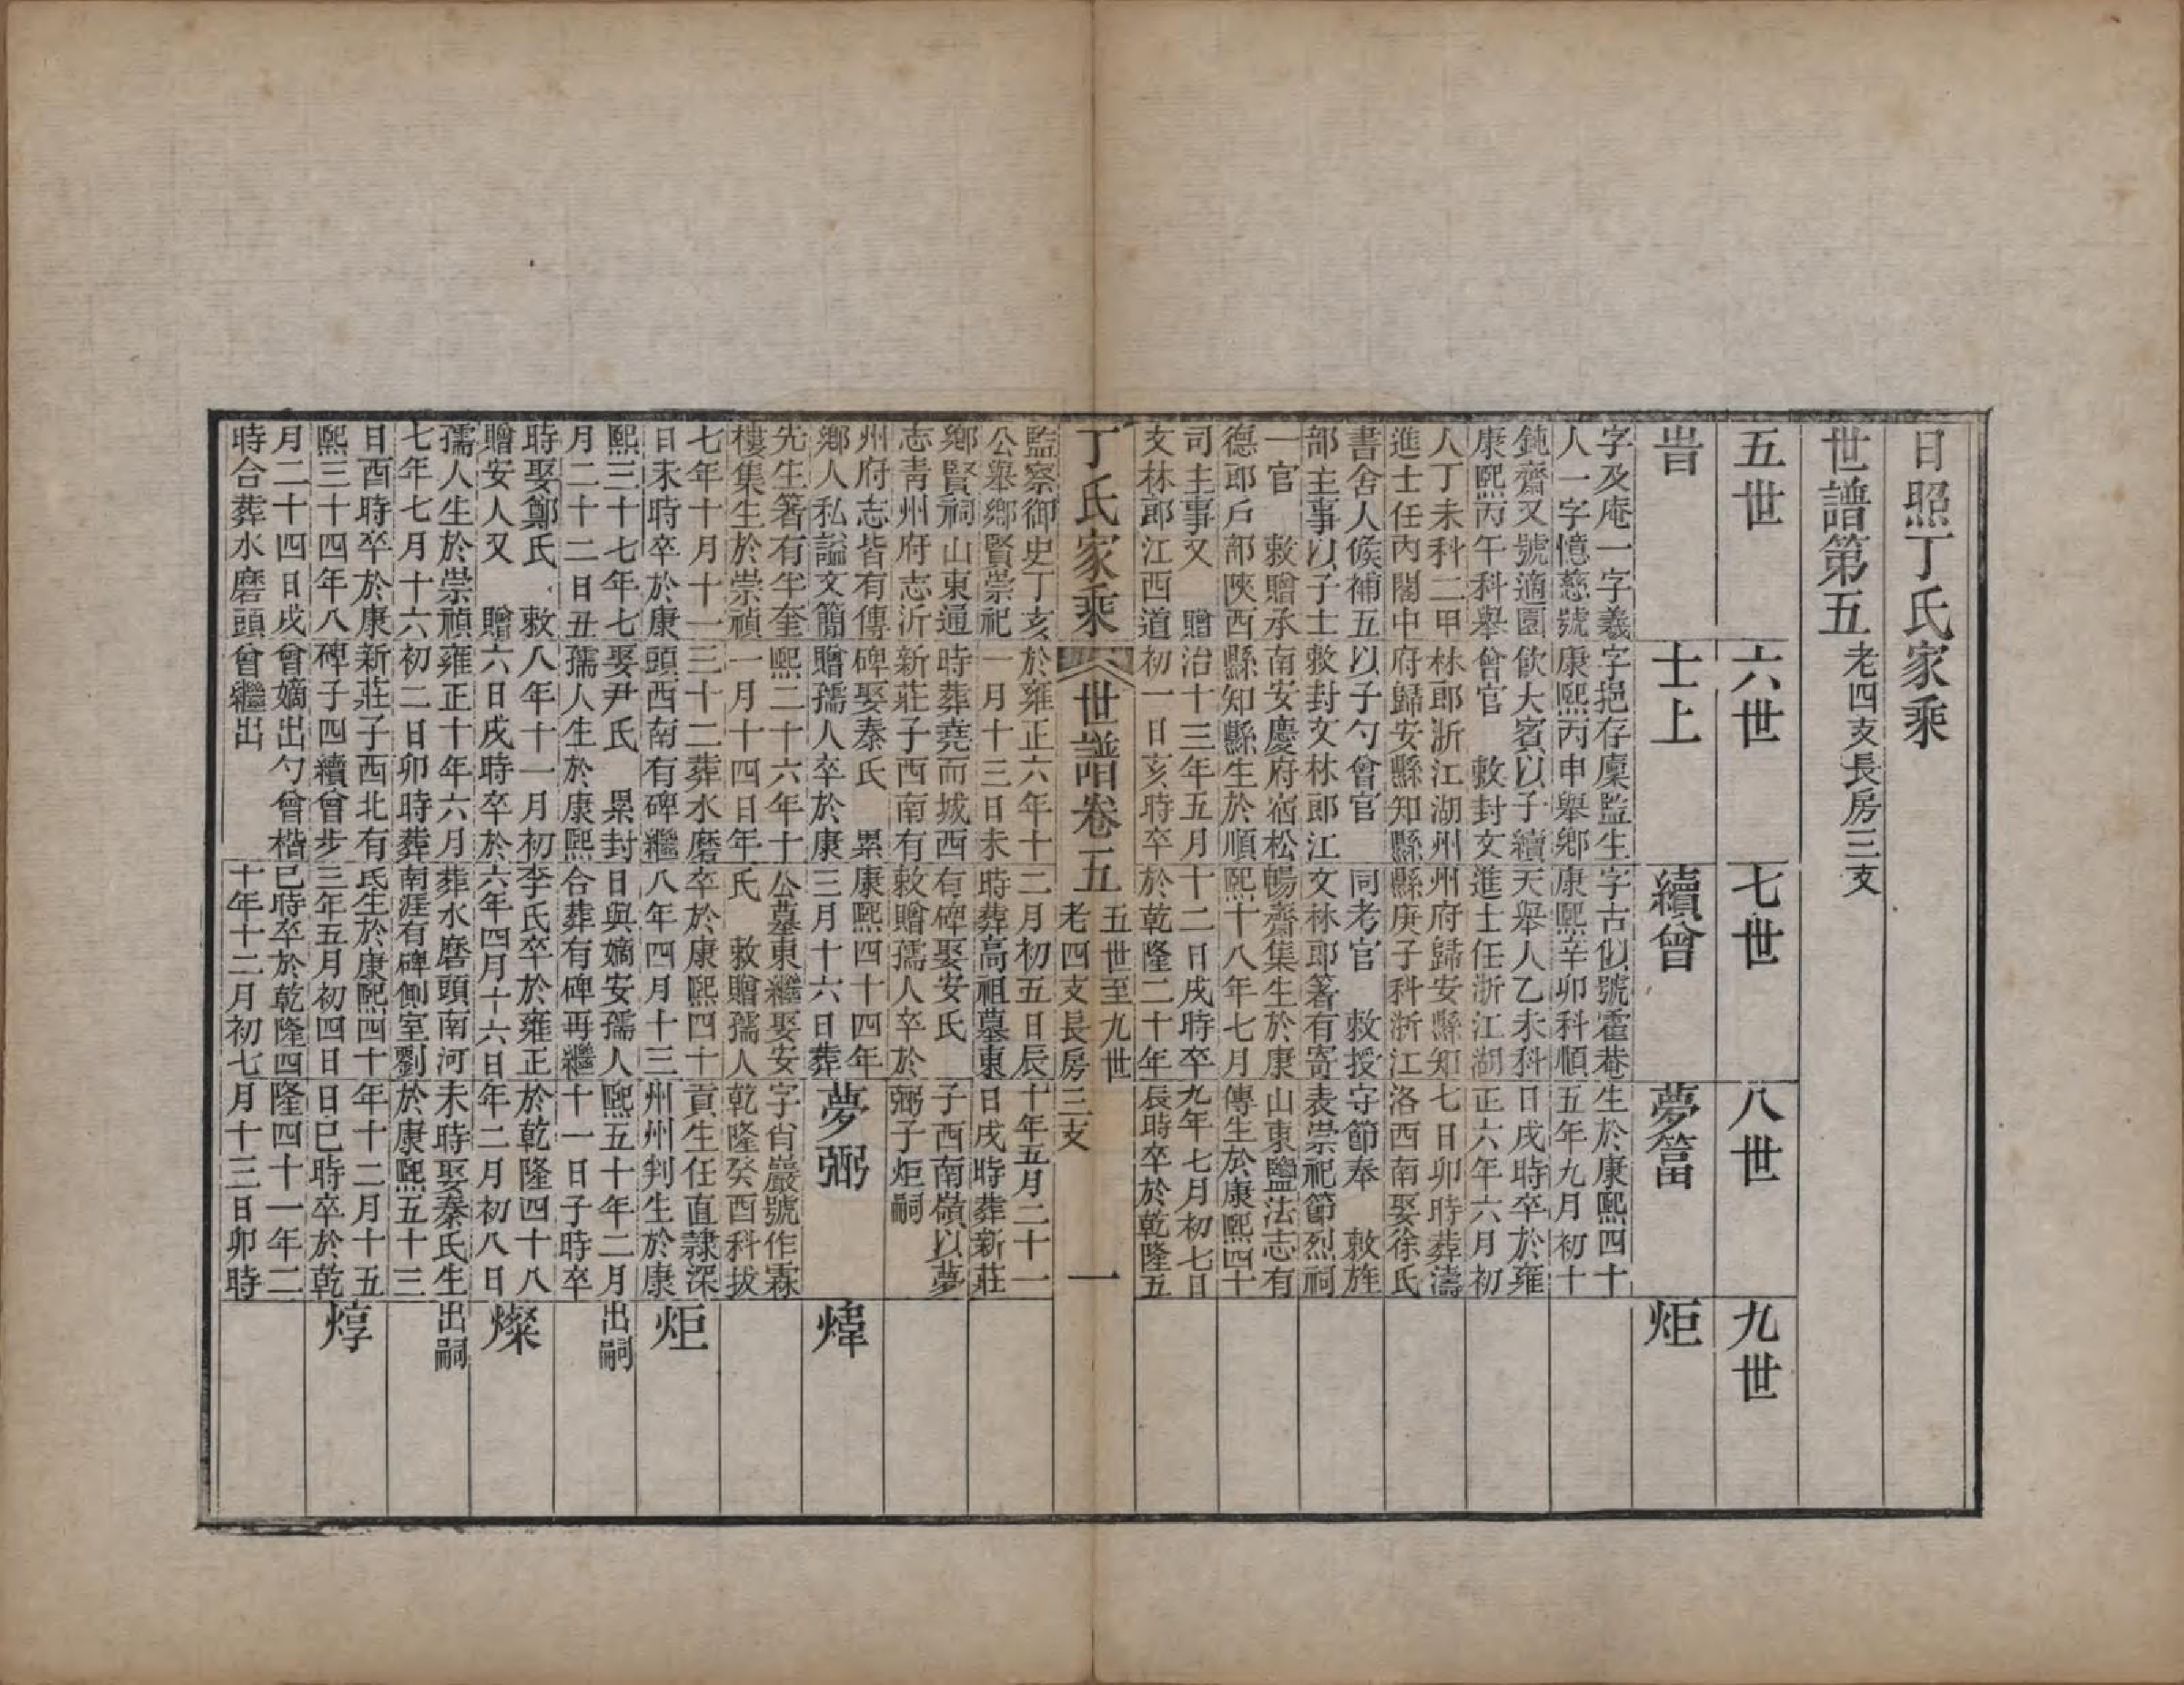 日照丁氏家乘
世譜第五 老四支長房三支
五世
六世
七世
八世
九世
旹
字及庵一字義
人一字憶慈號
鈍齋又號適園
康熙丙午科舉
人丁未科二甲
進士任內閣中
書舍人候補五
部主事以子士
一官 敕贈承
德郎戶部陝西
司主事又 贈
文林郎江西道
監察御史丁亥
公舉鄉賢崇祀
鄉賢祠山東通
志青州府志沂
州府志皆有傳
鄉人私謚文簡
先生箸有半奎
樓集生於崇禎
七年十月十一
日未時卒於康
熙三十七年七
月二十二日丑
時娶鄭氏 敕
贈安人又 贈
孺人生於崇禎
七年七月十六
日酉時卒於康
熙三十四年八
月二十四日戌
時合葬水磨頭
士上
字挹存廩監生
康熙丙申舉鄉
飲大賓以子續
曾官 敕封文
林郎浙江湖州
府歸安縣知縣
以子勺曾官
敕封文林郎江
南安慶府宿松
縣知縣生於順
治十三年五月
初一日亥時卒
於雍正六年十
一月十三日未
時葬堯而城西
新莊子西南有
碑娶秦氏 累
贈孺人卒於康
熙二十六年十
一月十四日年
三十二葬水磨
頭西南有碑繼
娶尹氏 累封
孺人生於康熙
八年十一月初
六日戌時卒於
雍正十年六月
初二日卯時葬
新莊子西北有
碑子四續曾步
曾嫡出勺曾楷
曾繼出
續曾
字古似號霍菴
康熙辛卯科順
天舉人乙未科
進士任浙江湖
州府歸安縣知
縣庚子科浙江
同考官 敕授
文林郎著有寄
暢齋集生於康
熙十八年七月
十二日戌時卒
於乾隆二十年
二月初五日辰
時葬高祖墓東
有碑娶安氏
敕贈孺人卒於
康熙四十四年
三月十六日葬
公墓東繼娶安
氏 敕贈孺人
卒於康熙四十
八年四月十三
日與嫡安孺人
合葬有碑再繼
李氏卒於雍正
六年四月十六日
葬水磨頭南河
南涯有碑側室劉
氏生於康熙四十
三年五月初四日
巳時卒於乾隆四
十年十二月初七
夢簹
生於康熙四十
五年九月初十
日戌時卒於雍
正六年六月初
七日卯時葬濤
洛西南娶徐氏
守節奉 敕旌
表崇祀節烈祠
山東鹽法志有
傳生於康熙四十
九年七月初七日
辰時卒於乾隆五
十年五月二十一
日戌時葬新莊
子西南嶺以夢
弼子炬嗣
夢弼
字肖巖號作霖
乾隆癸酉科拔
貢生任直隸深
州州判生於康
熙五十年二月
十一日子時卒
於乾隆四十八
年二月初八日
未時娶秦氏生
於康熙五十三
年十二月十五
日巳時卒於乾
隆四十一年二
月十三日卯時
炬
煒
炬
出嗣
燦
出嗣
焞
丁氏家乘
世譜卷五
五世至九世
老四支長房三支
一